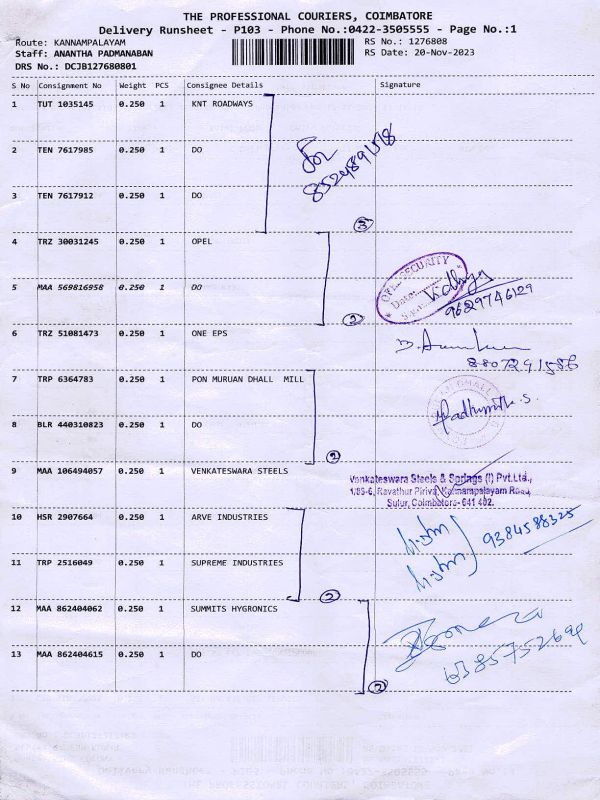 THE PROFESSIONAL COURIERS, COIMBATORE
Delivery Runsheet - P103 - Phone No.:0422-3505555 - Page No.:1
Route: KANNAMPALAYAM RS No.: 1276808
Staff: ANANTHA PADMANABAN RS Date: 20-Nov-2023
DRS No.: DCJB127680801
S No Consignment No Weight PCS Consignee Details Signature
1 TUT 1035145 0.250 1 KNT ROADWAYS
8524891578
2 TEN 7617985 0.250 1 DO
3 TEN 7617912 0.250 1 DO
3
4 TRZ 30031245 0.250 1 OPEL
SECURITY
Date:
Vidhya
5 MAA 569816958 0.250 1 DO
9629746129
2
6 TRZ 51081473 0.250 1 ONE EPS
8807291586
7 TRP 6364783 0.250 1 PON MURUAN DHALL MILL
Madhumitha.S.
8 BLR 440310823 0.250 1 DO
2
9 MAA 106494057 0.250 1 VENKATESWARA STEELS
Venkateswara Steels & Springs (I) Pvt.Ltd.,
1/85-6, Ravathur Pirivu, Kannampalayam Road,
Sulur, Coimbatore- 641 402.
10 HSR 2907664 0.250 1 ARVE INDUSTRIES
9384588325
11 TRP 2516049 0.250 1 SUPREME INDUSTRIES
2
12 MAA 862404062 0.250 1 SUMMITS HYGRONICS
13 MAA 862404615 0.250 1 DO
2